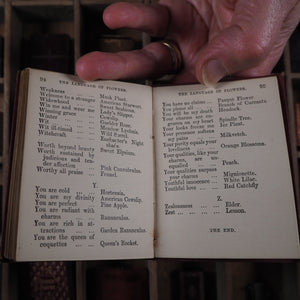 94 THE LANGUAGE OF FLOWERS.
Weakness Musk Plant.
Welcome to a stranger American Starwort.
Widowhood Sweet Scabious.
Win me and wear me Lady's Slipper.
Winning grace Cowslip.
Winter Guelder Rose.
Wit Meadow Lychnis.
Wit ill-timed Wild Sorrel.
Witchcraft Enchanter's Nightshade.
Worth beyond beauty Sweet Alyssum.
Worth sustained by
judicious and ten-
der affection Pink Convolvulus.
Worthy all praise Fennel.
Y.
You are cold Hortensia.
You are my divinity American Cowslip.
You are perfect Pine Apple.
You are radiant with
charms Ranunculus.
You are rich in at-
tractions Garden Ranunculus.
You are the queen of
coquettes Queen's Rocket.
THE LANGUAGE OF FLOWERS. 95
You have no claims Pasque Flower.
You please all Branch of Currants
You will be my death Hemlock.
Your charms are en-
graven on my heart Spindle Tree.
Your looks freeze me Ice Plant.
Your presence softens
my pains Milkvetch.
Your purity equals your
loveliness Orange Blossoms.
Your qualities, like your
charms, are un-
equalled Peach.
Your qualities surpass
your charms Mignionette.
Youthful innocence White Lilac.
Youthful love Red Catchfly
Z.
Zealousness Elder.
Zest Lemon.
THE END.